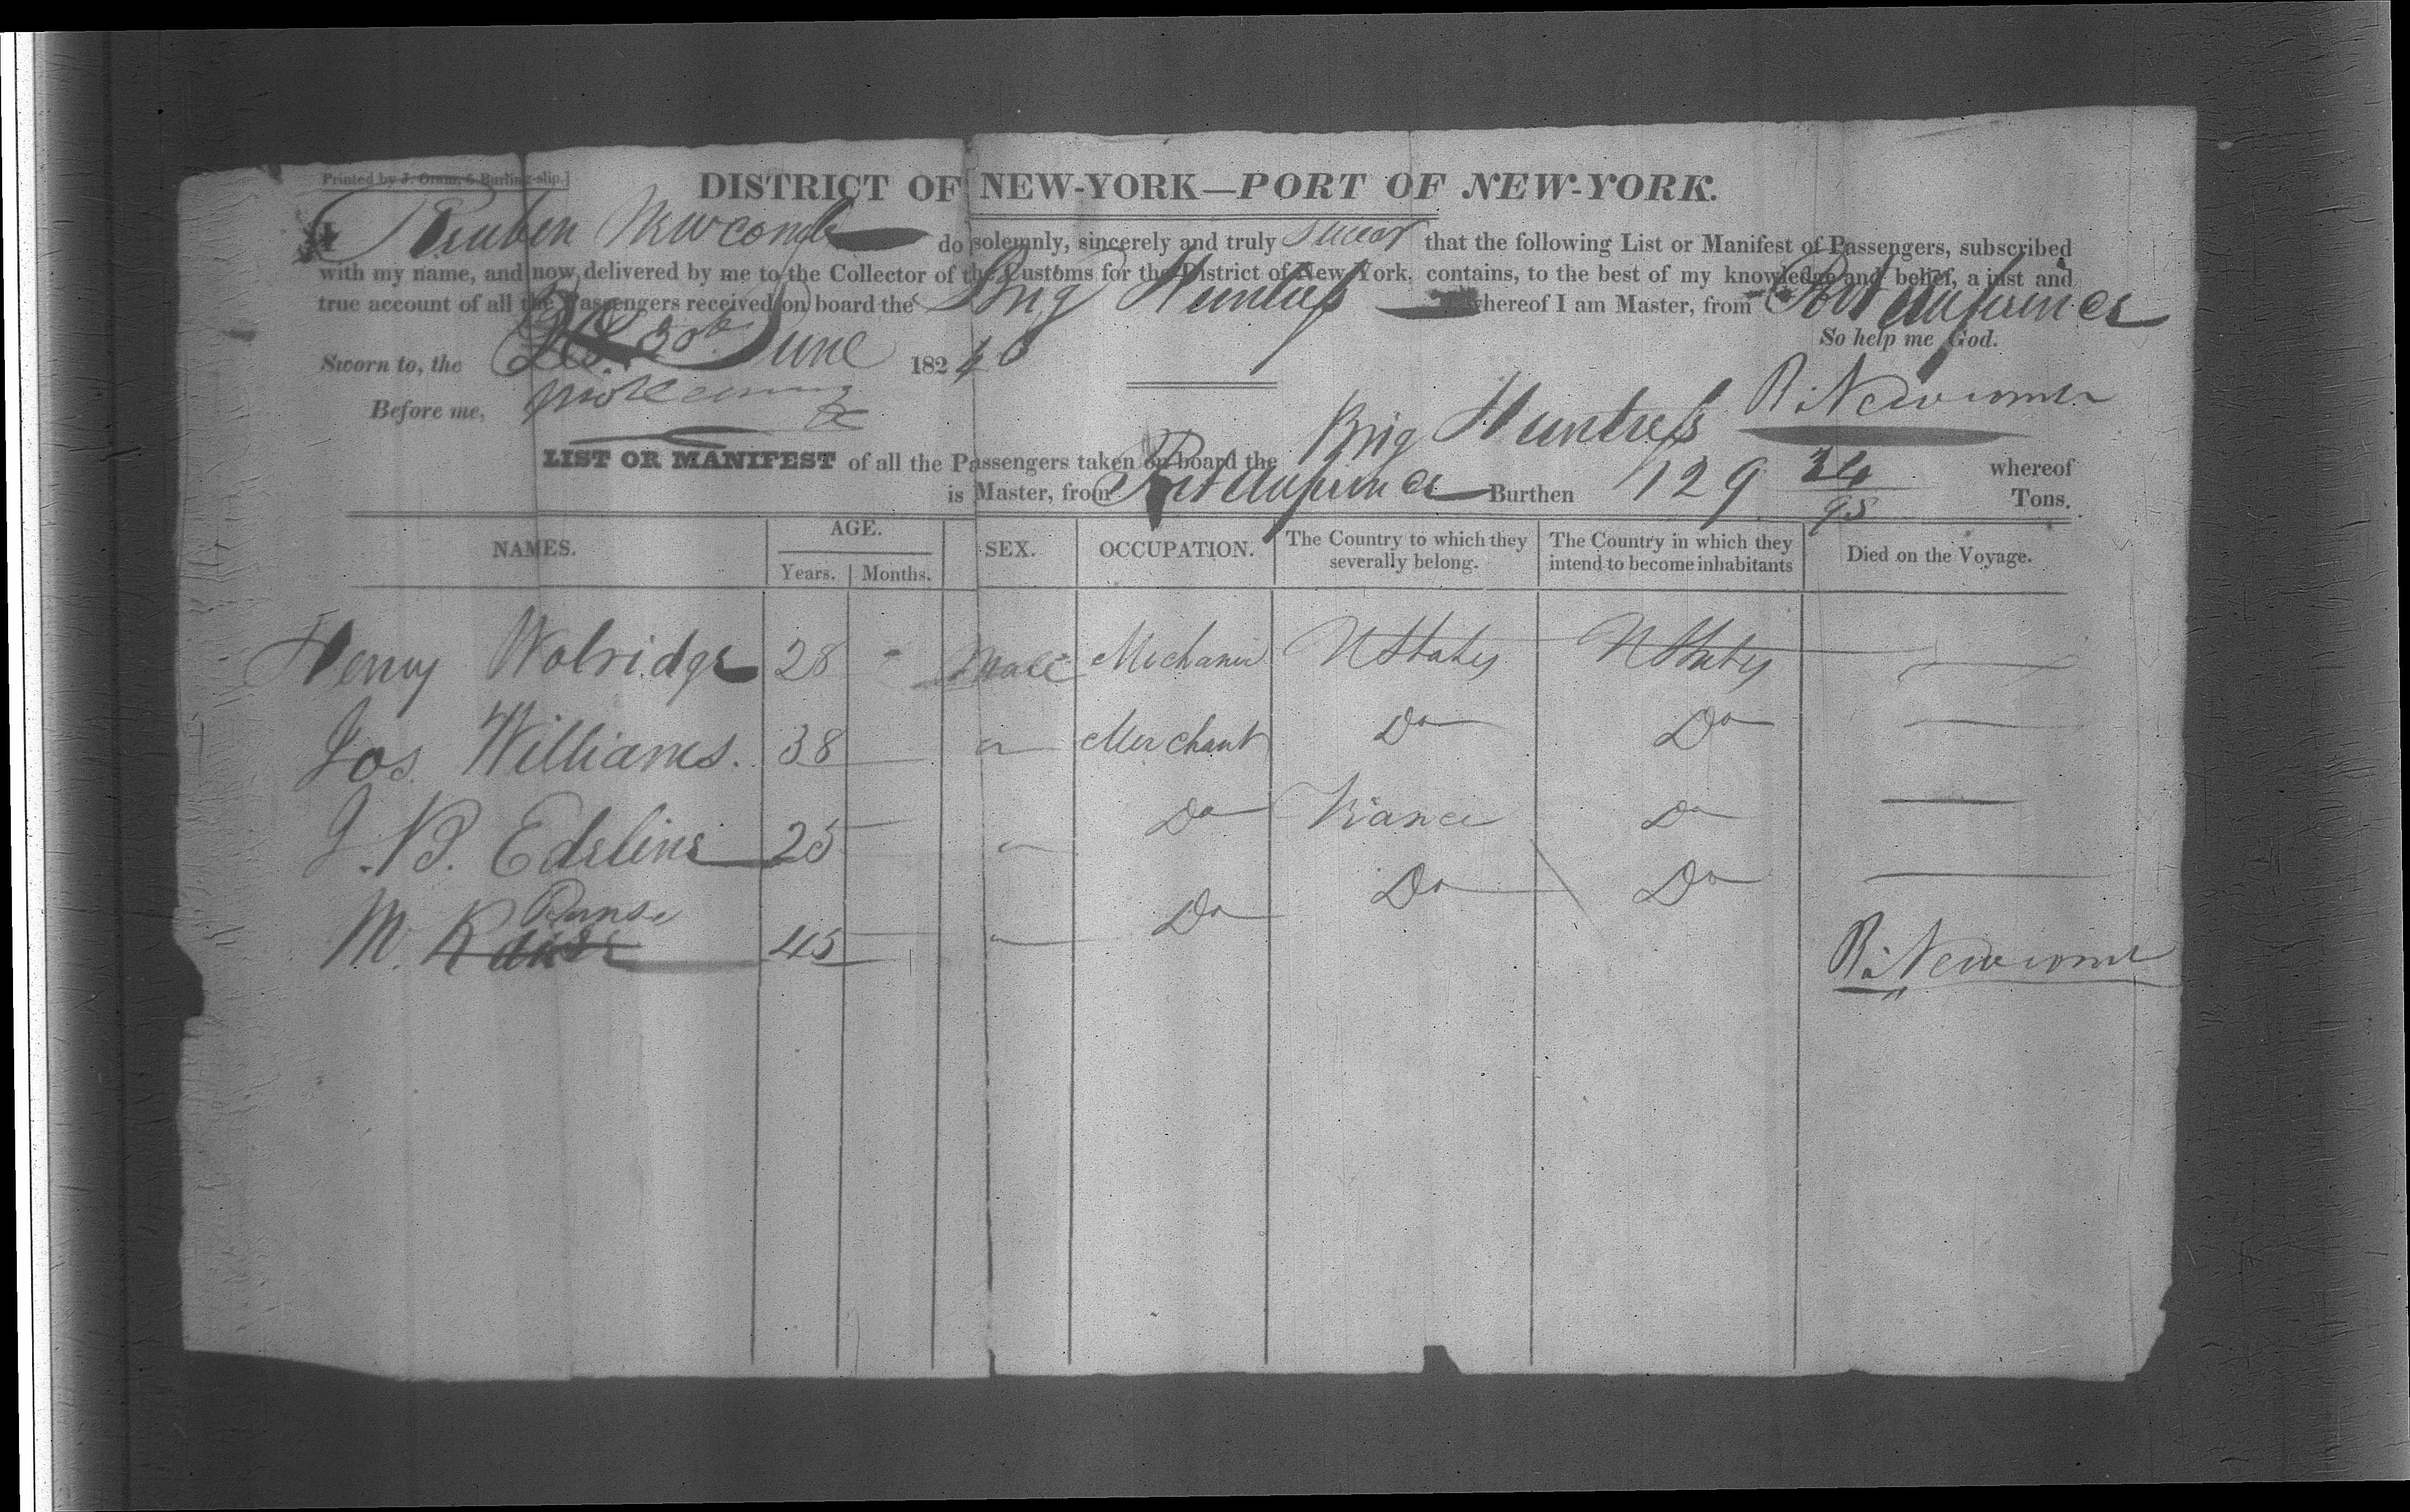 Printed by J. Oram, 5 Burling-slip.]
DISTRICT OF NEW-YORK—PORT OF NEW-YORK.
I Reuben Newcomb do solemnly, sincerely and truly swear that the following List or Manifest of Passengers, subscribed
with my name, and now delivered by me to the Collector of the Customs for the District of New York, contains, to the best of my knowledge and belief, a just and
true account of all the Passengers received on board the Brig Huntress whereof I am Master, from Port au prince
So help me God.
Sworn to, the 30th June 1826
Before me,
R. Newcomb
LIST OR MANIFEST of all the Passengers taken on board the Brig Huntress whereof
is Master, from Port au prince Burthen 129 24/95 Tons.
NAMES. AGE. Years. Months. SEX. OCCUPATION. The Country to which they severally belong. The Country in which they intend to become inhabitants Died on the Voyage.
Henry Wolridge 28 - Male Mechanic U States U States —
Jos. Williams. 38 — " Merchant Do Do —
J. B. Edeline 25 — " Do France Do —
M. 45 — " Do Do Do —
R. Newcomb